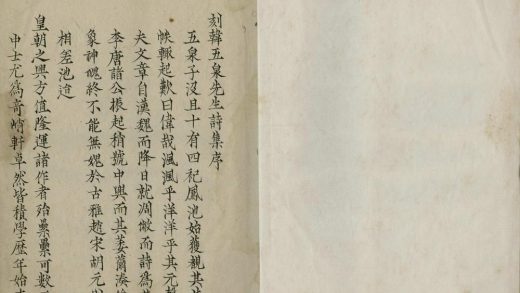 刻韓五泉先生詩集序
五泉子沒且十有四祀鳳池始獲覩其
帙輒起歎曰偉哉渢渢乎洋洋乎其元
夫文章自漢魏而降日就凋敝而詩為
李唐諸公振起稍號中興而其萎薾湊
象神魄終不能無媿於古雅趙宋胡元
相差池迨
皇朝之興方值隆運諸作者殆纍纍可數
中士尤為奇崎軒卓然皆積學歷年始